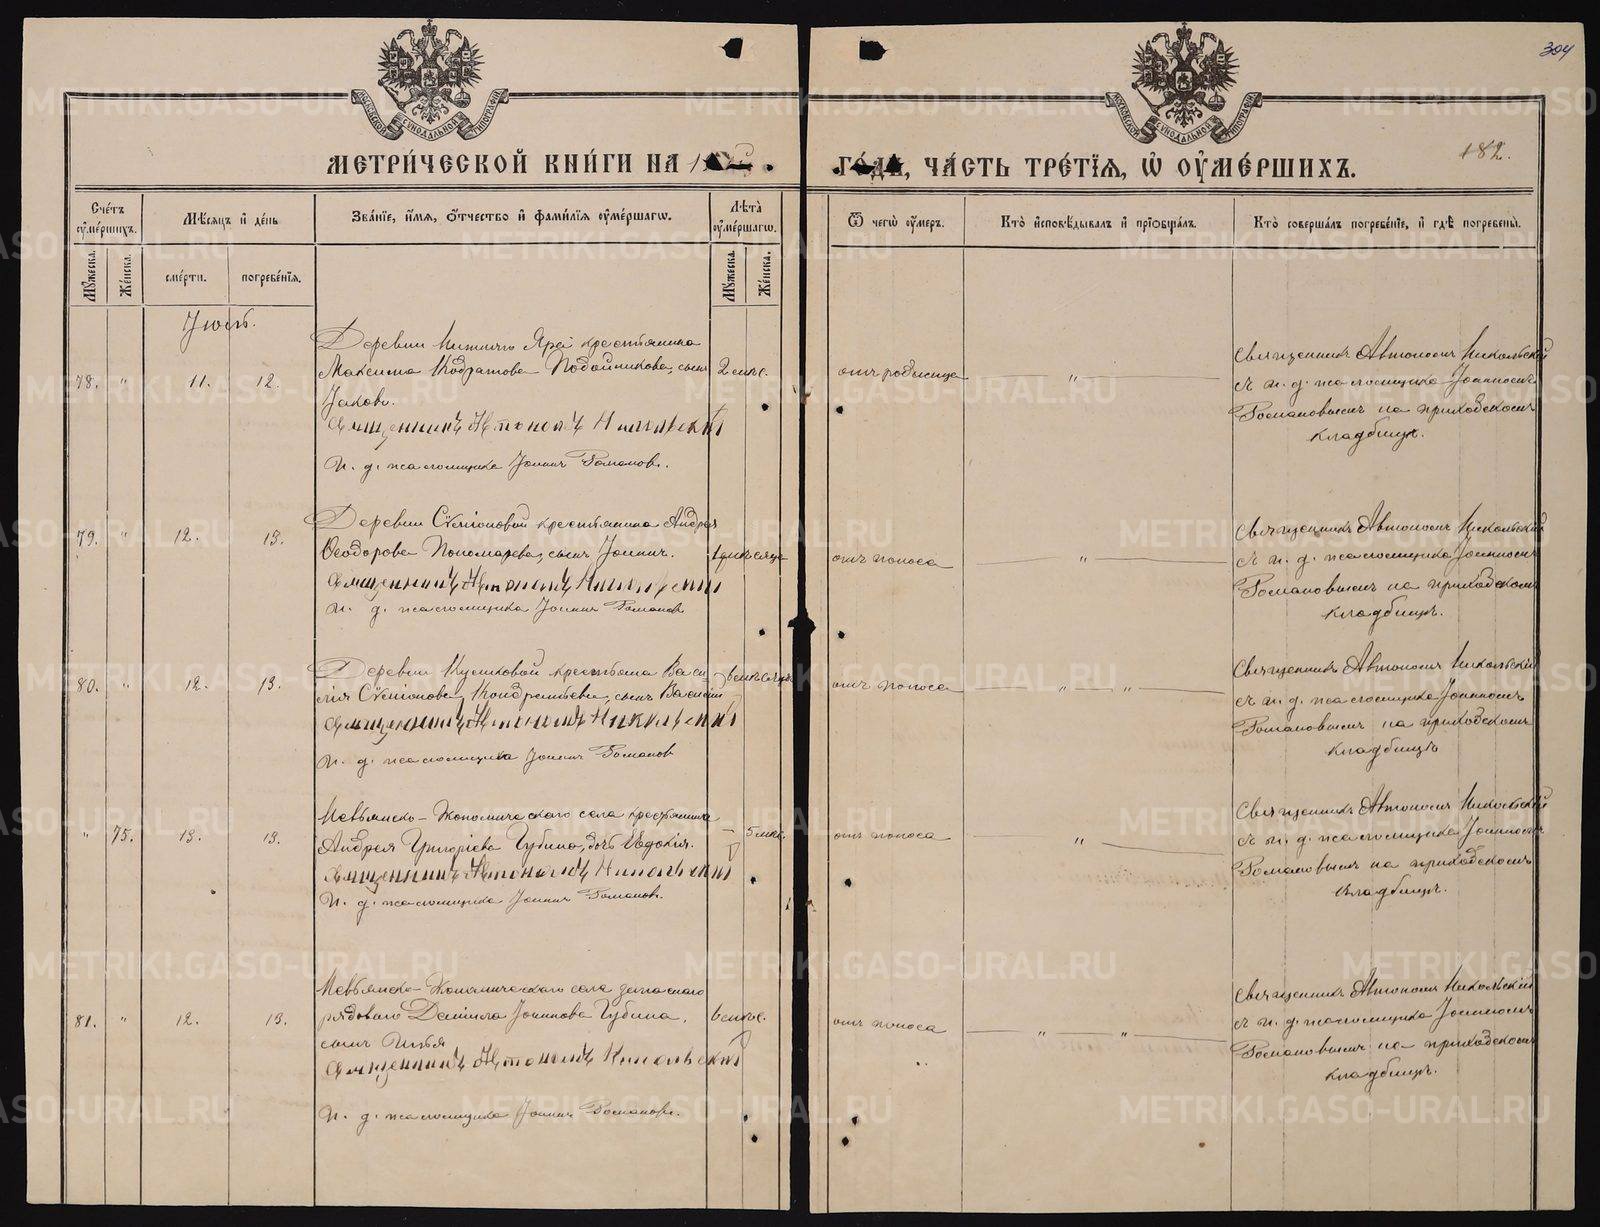 304
МЕТРИ́ЧЕСКОЙ КНИ́ГИ НА 1
ГО́ДА, ЧА́СТЬ ТРЕ́ТЇѦ, Ѡ҆ ОУ҆МЕ́РШИХЪ.
182.
Сче́тъ оу҆ме́ршихъ.
Мꙋ́жеска.
Же́нска.
Мѣ́сѧцъ и҆ де́нь
сме́рти.
погребе́нїѧ.
Зва́нїе, и҆́мѧ, ѻ҆́тчество и҆ фами́лїѧ оу҆ме́ршагѡ.
Лѣ́та оу҆ме́ршагѡ.
Мꙋ́жеска.
Же́нска.
Ѿ чегѡ̀ оу҆́меръ.
Кто̀ и҆сповѣ́дывалъ и҆ прїѡбща́лъ.
Кто̀ соверша́лъ погребе́нїе, и҆ гдѣ̀ погребены̀.
Іюль.
78. " 11. 12.
Деревни Нижнихъ Ярей крестьянина
Максима Кодратова Подойникова, сынъ
Іаковъ.
Священникъ Автономъ Никольскій
И. д. псаломщика Іоаннъ Романовъ.
2 мѣс.
отъ родимца
"
Священникъ Автономъ Никольскій
съ и. д. псаломщика Іоанномъ
Романовымъ на приходскомъ
кладбищѣ.
79. " 12. 13.
Деревни Сѵміоновой крестьянина Андрея
Ѳеодорова Пономарева, сынъ Іоаннъ.
Священникъ Автономъ Никольскій
И. д. псаломщика Іоаннъ Романовъ
1 мѣсяца
отъ поноса
"
Священникъ Автономъ Никольскій
съ и. д. псаломщика Іоанномъ
Романовымъ на приходскомъ
кладбищѣ.
80. " 12. 13.
Деревни Кушковой крестьяна Васи-
лія Сѵміонова Кондратьева, сынъ Василій
Священникъ Автономъ Никольскій
И. д. псаломщика Іоаннъ Романовъ
отъ поноса
" "
Священникъ Автономъ Никольскій
съ и. д. псаломщика Іоанномъ
Романовымъ на приходскомъ
кладбищѣ
" 75. 13. 13.
Невьянско-Экономическаго села крестьянина
Андрея Григоріева Губина, дочь Евдокія.
Священникъ Автономъ Никольскій
И. д. псаломщика Іоаннъ Романовъ.
5 мѣс.
отъ поноса
"
Священникъ Автономъ Никольскій
съ и. д. псаломщика Іоанномъ
Романовымъ на приходскомъ
кладбищѣ.
81. " 12. 13.
Невьянско-Экономическаго села запаснаго
рядоваго Даніила Іоаннова Губина,
сынъ Илья
Священникъ Автономъ Никольскій
И. д. псаломщика Іоаннъ Романовъ.
6 мѣс.
отъ поноса
" "
Священникъ Автономъ Никольскій
съ и. д. псаломщика Іоанномъ
Романовымъ на приходскомъ
кладбищѣ.
METRIKI.GASO-URAL.RU